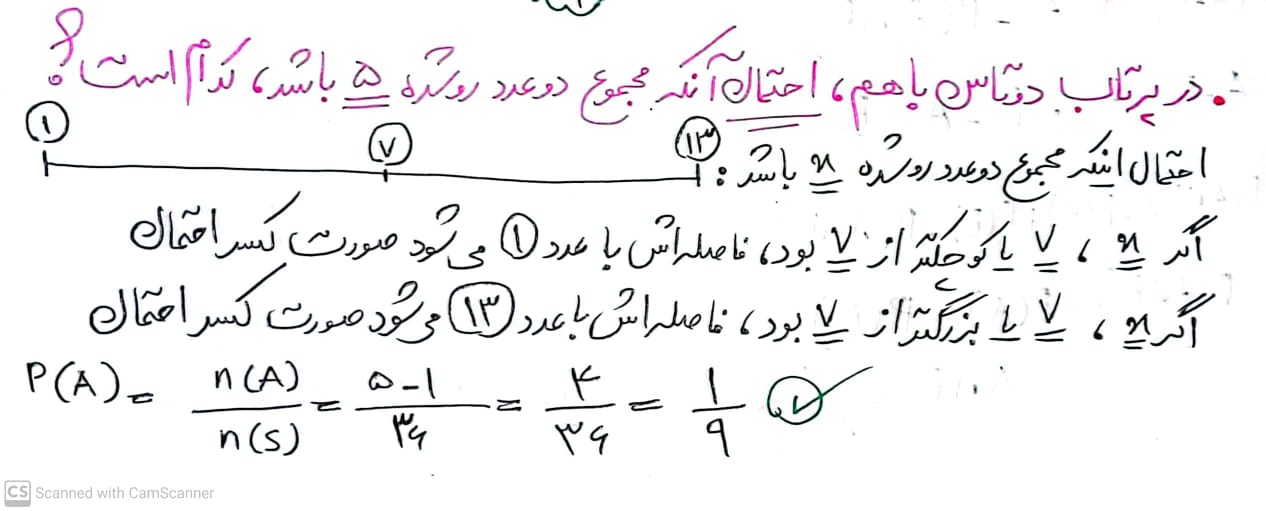 در پرتاب دو تاس با هم، احتمال آنکه مجموع دو عدد رو شده ۵ باشد، کدام است؟
۱ ۷ ۱۳
احتمال اینکه مجموع دو عدد رو شده x باشد:
اگر x، ۷ یا کوچکتر از ۷ بود، فاصله‌اش با عدد ۱ می‌شود صورت کسر احتمال
اگر x، ۷ یا بزرگتر از ۷ بود، فاصله‌اش با عدد ۱۳ می‌شود صورت کسر احتمال
P(A) = n(A)/n(S) = ۵-۱/۳۶ = ۴/۳۶ = ۱/۹
CS Scanned with CamScanner